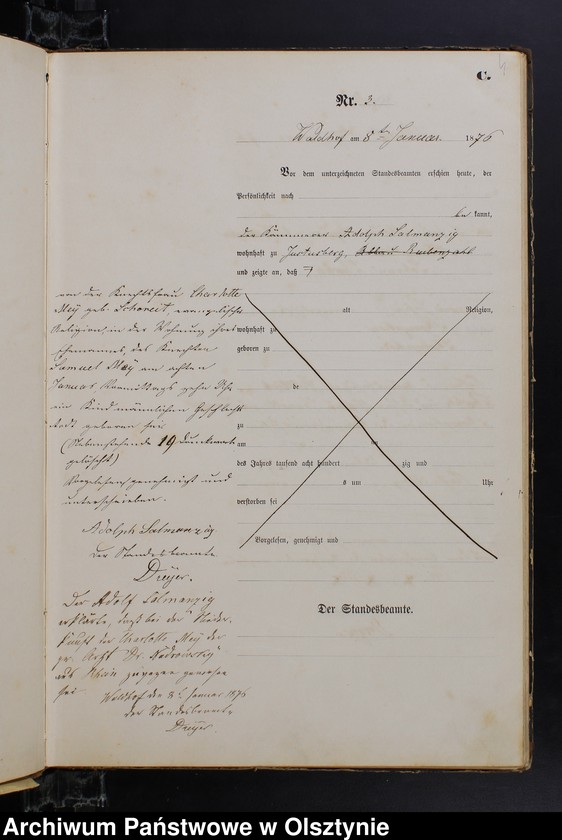 C.
4
Nr. 3.
Waldhof am 8ten Januar 1876
Vor dem unterzeichneten Standesbeamten erschien heute, der
Persönlichkeit nach
be kannt,
der Kämmerer Adolph Salmanzig
wohnhaft zu Justusberg,
und zeigte an, daß
von der Knechtsfrau Charlotte
Mey geb. Schoneit, evangelischer
Religion, in der Wohnung ihres
Ehemannes, des Knechten
Samuel Mey am achten
Januar Vormittags zehn Uhr
ein Kind männlichen Geschlechts
todt geboren sei
(Nebenstehende 19 Druckworte
gelöscht)
Vorgelesen, genehmigt und
unterschrieben.
Adolph Salmanzig
Der Standesbeamte
Dreyer.
Der Adolf Salmanzig
erklärte, daß bei der Nieder-
kunft der Charlotte Mey der
pr. Arzt Dr.
aus Rhein zugegen gewesen
sei
Waldhof den 8t Januar 1876
der Standesbeamte
Dreyer.
alt Religion,
wohnhaft zu
geboren zu
de
zu
am
des Jahres tausend acht hundert zig und
s um Uhr
verstorben sei
Vorgelesen, genehmigt und
Der Standesbeamte.
Archiwum Państwowe w Olsztynie